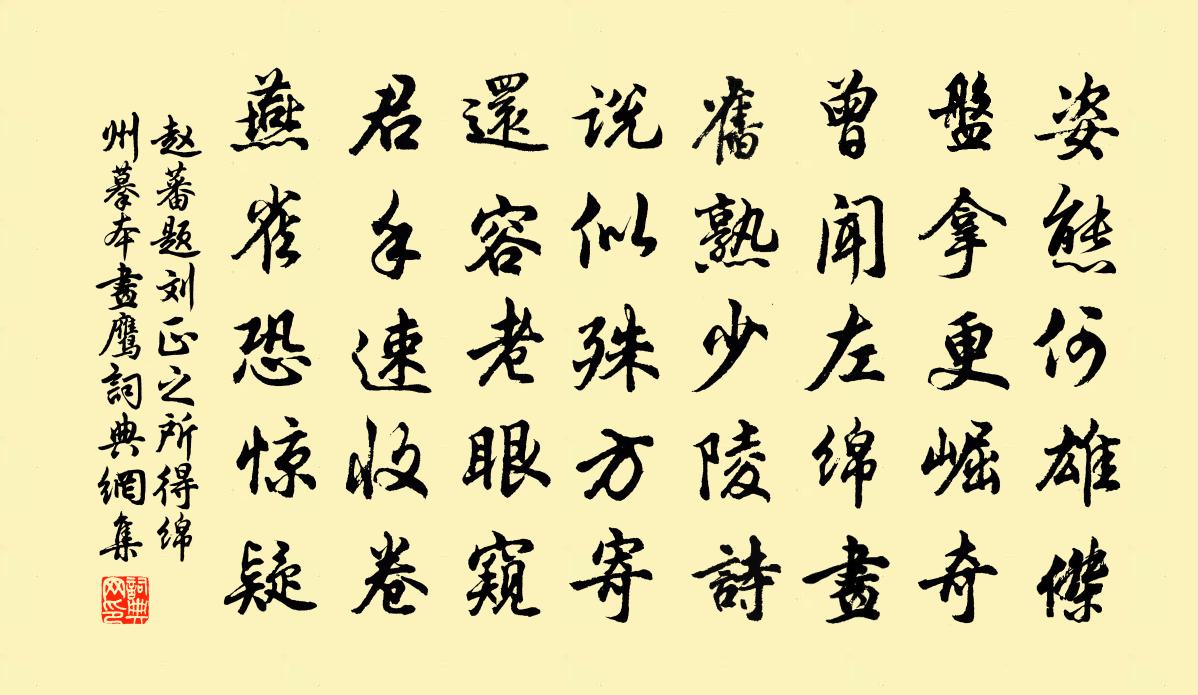 姿態何雄傑
盤拿更崛奇
曾聞左绵畫
舊熟少陵詩
说似殊方寄
還容老眼窺
君手速收卷
燕雀恐惊疑
赵蕃题刘正之所得绵
州摹本畫鹰詞典網集
詞典网印